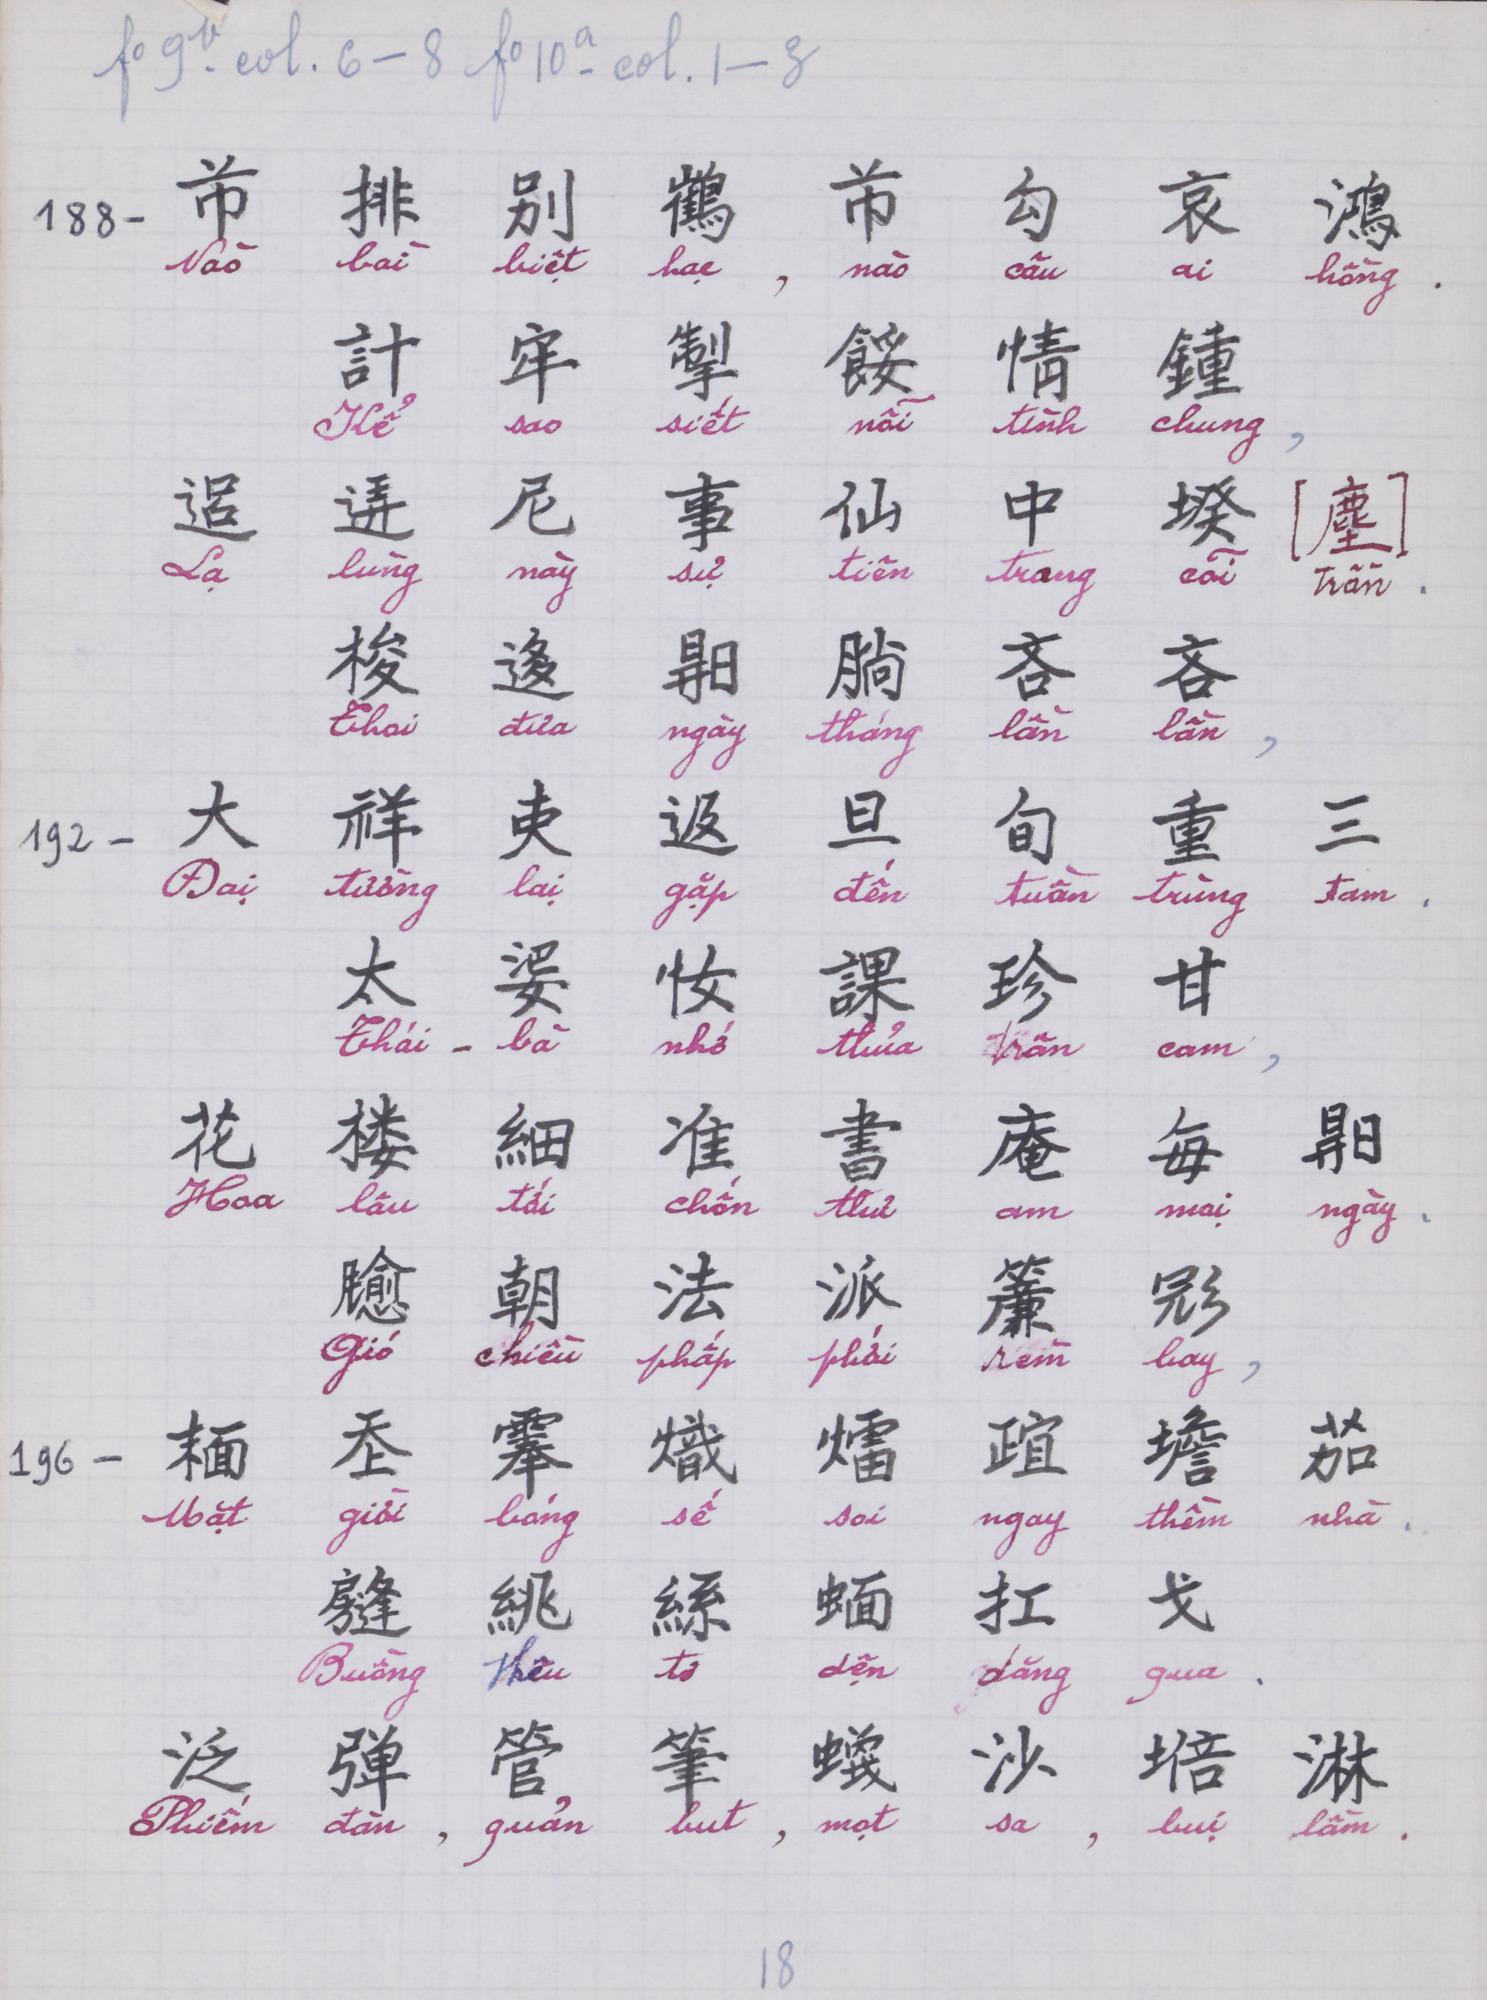 fº 9ᵇ col. 6 – 8 fº 10ᵃ col. 1 – 3
188 - 芇 排 别 鶴 芇 勾 哀 鴻
Nào bài biệt hạc , nào câu ai hồng .
計 牢 掣 餒 情 鍾
Kể sao siết nỗi tình chung ,
逻 迸 尼 事 仙 中 堘 [塵]
Lạ lùng này sự tiên trong cõi Trần .
梭 迻 𣈜 𦝄 吝 吝
Thoi đưa ngày tháng lần lần ,
192 - 大 祥 吏 返 旦 旬 重 三
Đại tường lại gặp đến tuần trùng tam .
太 𡞕 𢘾 課 珍 甘
Thái - bà nhớ thủa trân cam ,
花 楼 細 准 書 庵 每 𣈜
Hoa lâu tới chốn thư am mọi ngày .
𩙌 朝 法 派 簾 𢒎
Gió chiều phấp phới rèm bay ,
196 - 𩈘 𡗶 䨔 熾 㷟 𣦍 𡍞 茹
Mặt giời bóng sế soi ngay thềm nhà .
縫 絩 絲 𧍴 扛 戈
Buồng thêu tơ dện dăng qua .
泛 弹 管 筆 蠛 沙 培 淋
Phiếm đàn , quản but , mọt sa , bụi lầm .
18